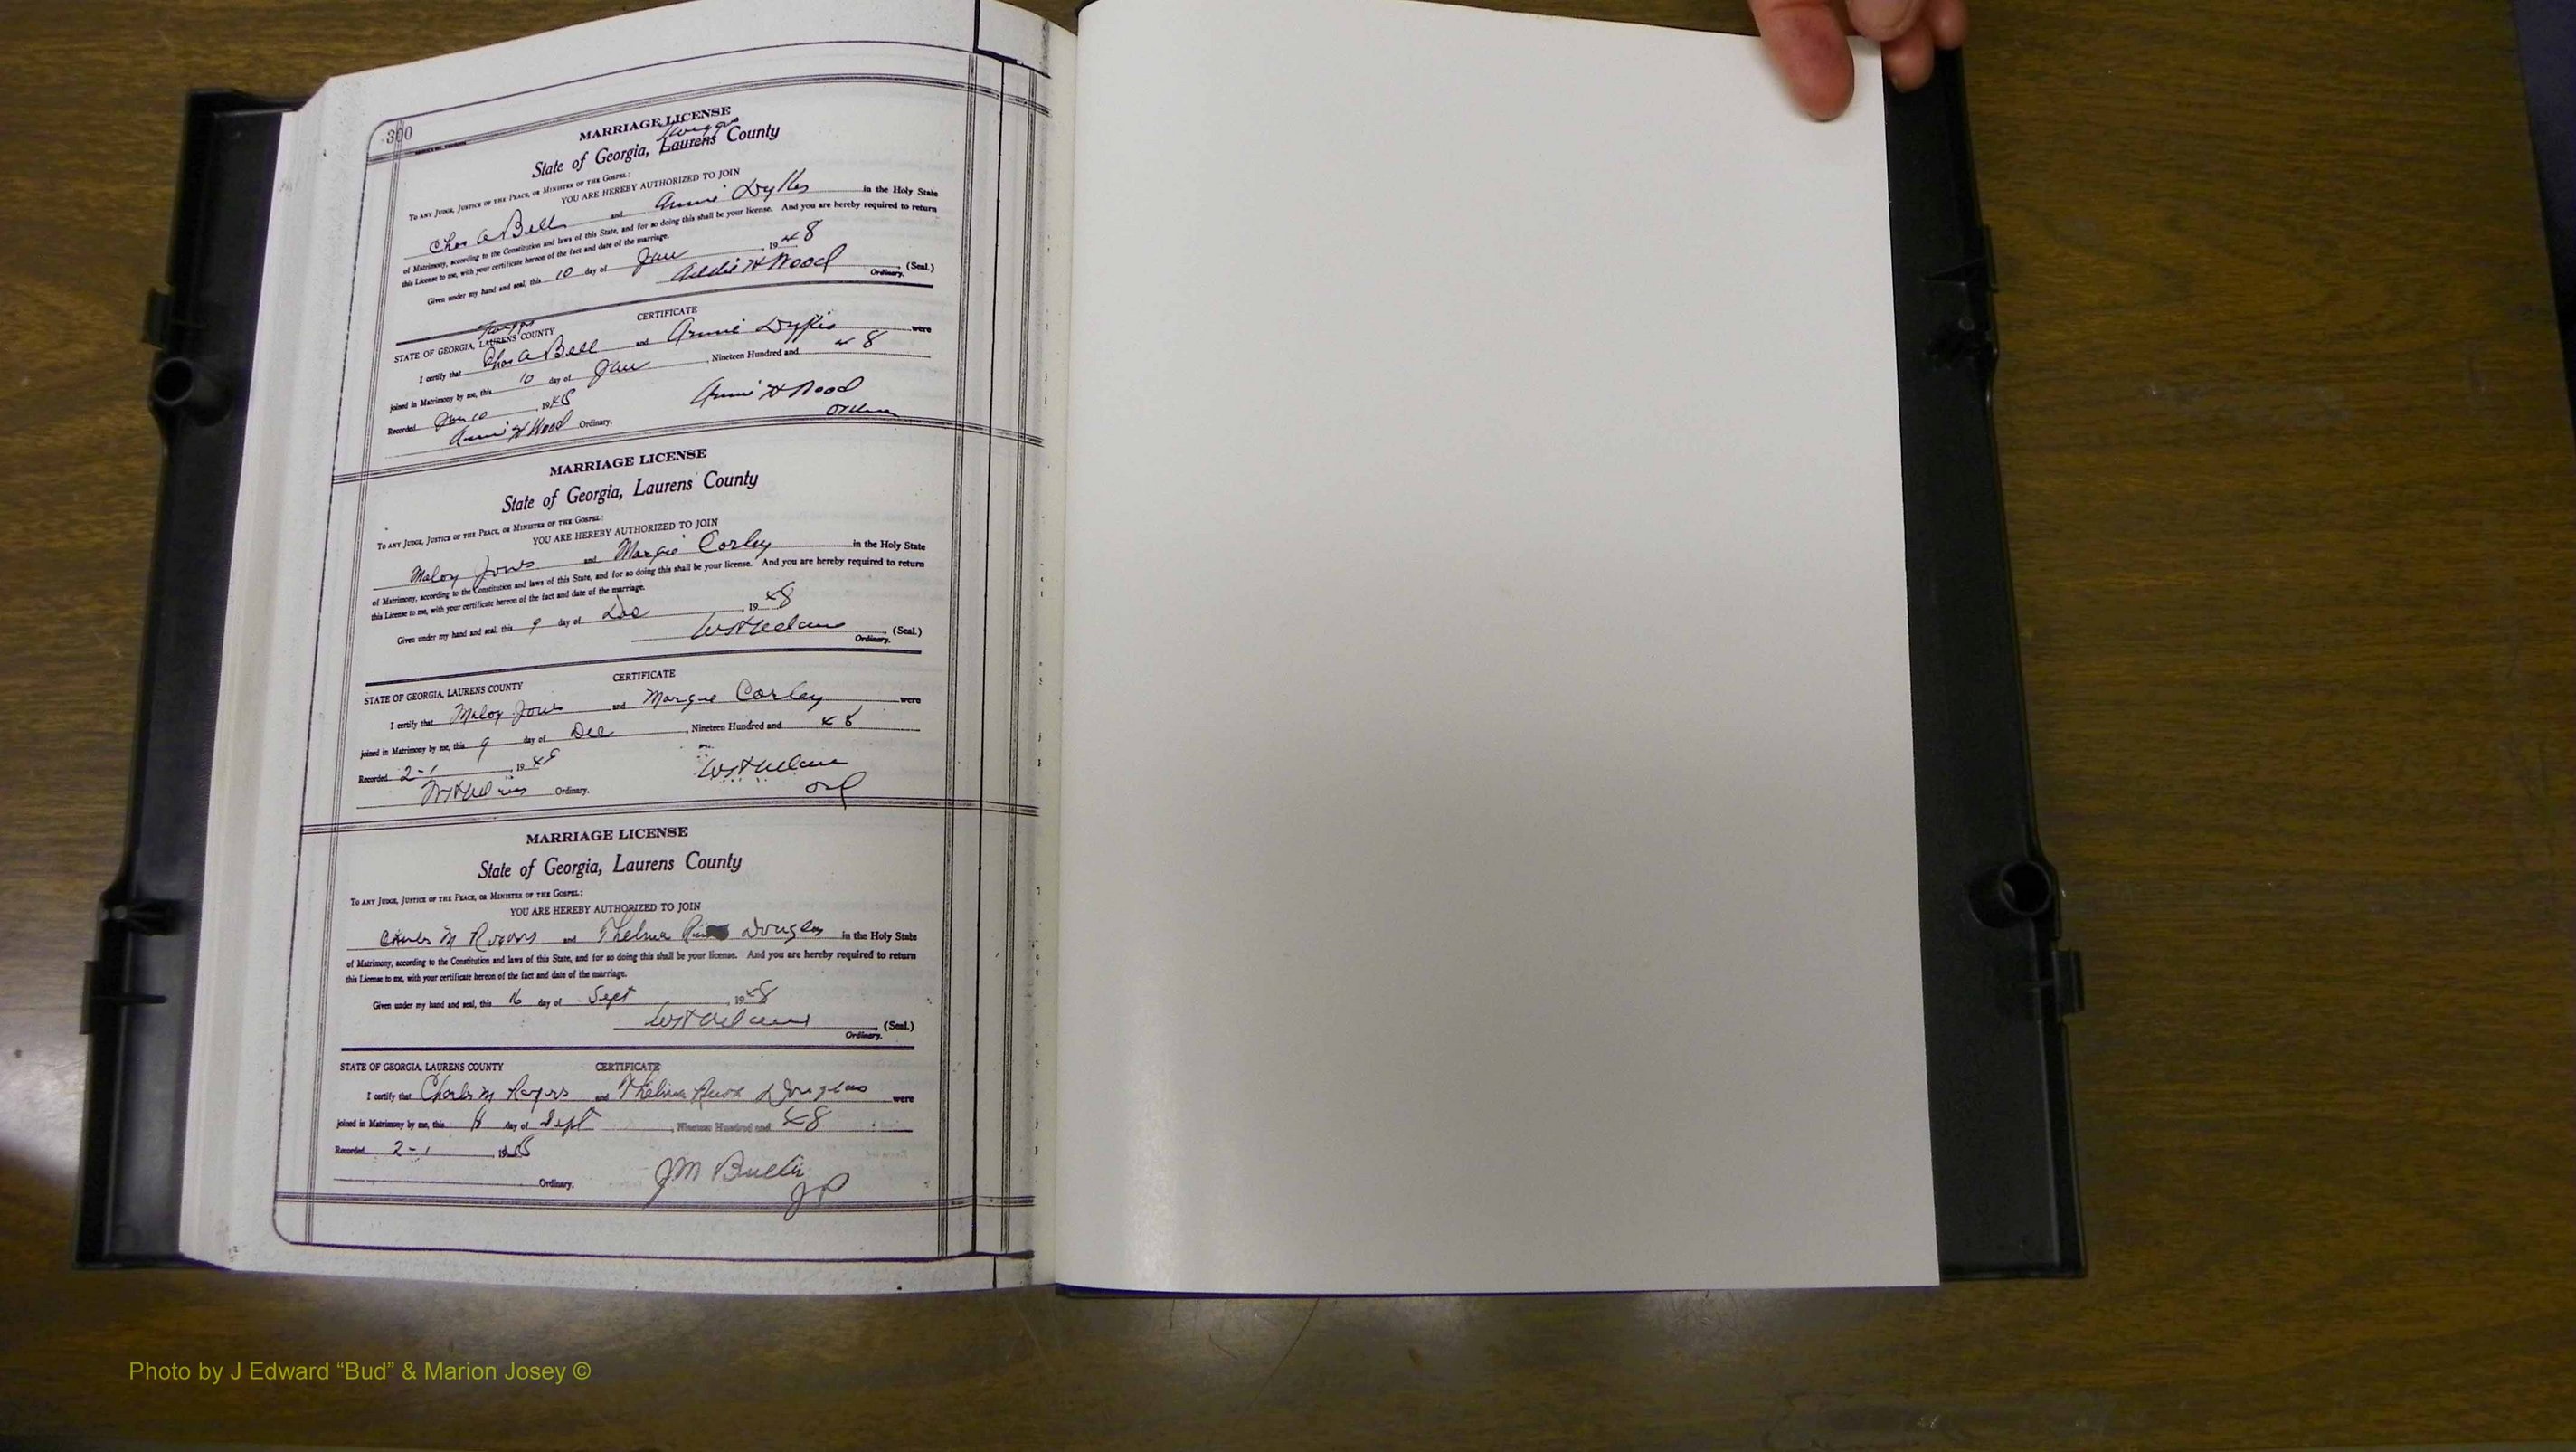 300
MARRIAGE LICENSE
Twiggs
State of Georgia, Laurens County
TO ANY JUDGE, JUSTICE OF THE PEACE, OR MINISTER OF THE GOSPEL:
YOU ARE HEREBY AUTHORIZED TO JOIN
Chas A Bell and Annie Dykes in the Holy State
of Matrimony, according to the Constitution and laws of this State, and for so doing this shall be your license. And you are hereby required to return
this License to me, with your certificate hereon of the fact and date of the marriage.
Given under my hand and seal, this 10 day of Jan, 1948
Addie H Wood (Seal.)
Ordinary.
CERTIFICATE
Twiggs
STATE OF GEORGIA, LAURENS COUNTY
I certify that Chas A Bell and Annie Dykes were
joined in Matrimony by me, this 10 day of Jan, Nineteen Hundred and 48
Recorded Jan 10, 1948
Annie H Wood
Annie H Wood Ordinary.
MARRIAGE LICENSE
State of Georgia, Laurens County
TO ANY JUDGE, JUSTICE OF THE PEACE, OR MINISTER OF THE GOSPEL:
YOU ARE HEREBY AUTHORIZED TO JOIN
Maloy Jones and Margie Corley in the Holy State
of Matrimony, according to the Constitution and laws of this State, and for so doing this shall be your license. And you are hereby required to return
this License to me, with your certificate hereon of the fact and date of the marriage.
Given under my hand and seal, this 9 day of Dec, 1948
(Seal.)
Ordinary.
CERTIFICATE
STATE OF GEORGIA, LAURENS COUNTY
I certify that Maloy Jones and Margie Corley were
joined in Matrimony by me, this 9 day of Dec, Nineteen Hundred and 48
Recorded 2-1, 19
Ord
Ordinary.
MARRIAGE LICENSE
State of Georgia, Laurens County
TO ANY JUDGE, JUSTICE OF THE PEACE, OR MINISTER OF THE GOSPEL:
YOU ARE HEREBY AUTHORIZED TO JOIN
Charles M Rogers and Thelma Douglas in the Holy State
of Matrimony, according to the Constitution and laws of this State, and for so doing this shall be your license. And you are hereby required to return
this License to me, with your certificate hereon of the fact and date of the marriage.
Given under my hand and seal, this 16 day of Sept, 1948
(Seal.)
Ordinary.
STATE OF GEORGIA, LAURENS COUNTY CERTIFICATE
I certify that Charles M Rogers and Thelma Douglas were
joined in Matrimony by me, this day of Sept, Nineteen Hundred and 48
Recorded 2-1, 19
J M
J P
Ordinary.
Photo by J Edward “Bud” & Marion Josey ©